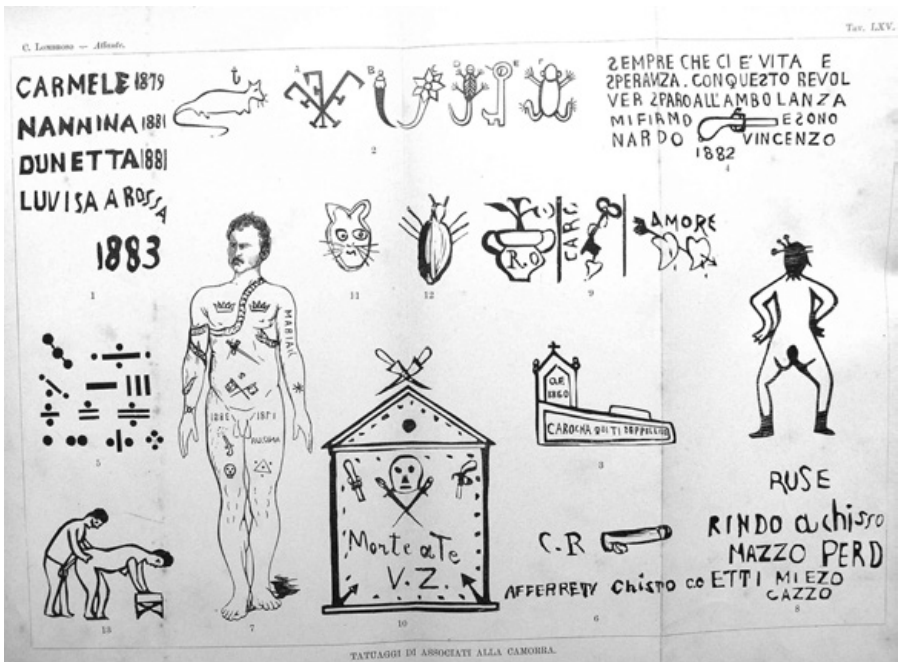 C. Lombroso — Atlante.
Tav. LXV.
CARMELE 1879
NANNINA 1881
DUNETTA 1881
LUVISA A ROSSA
1883
1
t
A
B
C
D
E
F
2
SEMPRE CHE CI E' VITA E
SPERANZA. CON QUESTO REVOL
VER SPARO ALL'AMBOLANZA
MI FIRMO E SONO
NARDO VINCENZO
1882
4
11
12
R.O
CARC
9
AMORE
5
MARIA
1871
7
Morte a Te
V. Z.
10
CAROGNA QUI TI
3
C.R
AFFERRETV Chisto
6
RUSE
RINDO a chisso
MAZZO PERD
ETTI MIEZO
CAZZO
8
13
TATUAGGI DI ASSOCIATI ALLA CAMORRA.